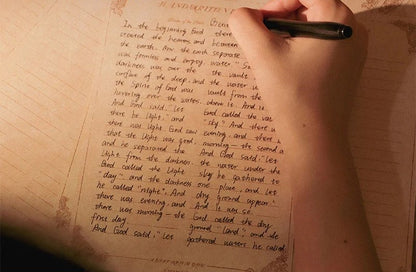 HANDWRITTEN
In the beginning God
created the heavens and
the earth. Now the earth
was formless and empty,
darkness was over the
surface of the deep, and
the Spirit of God was
hovering over the waters.
And God said, "Let
there be light," and
there was light. God saw
that the light was good,
and he separated the
light from the darkness.
God called the light
"day", and the darkness
he called "night". And
there was evening, and
there was morning — the
first day.
And God said, "Let
there
between
separate
water." So
the vault
the water u
vault from the
above it. And it
God called the va
"sky". And there w
evening, and there w
morning — the second d
And God said, "Let
the water under the
sky be gathered to
one place, and let
dry ground appear."
And it was so.
God called the dry
ground "land", and the
gathered waters he called